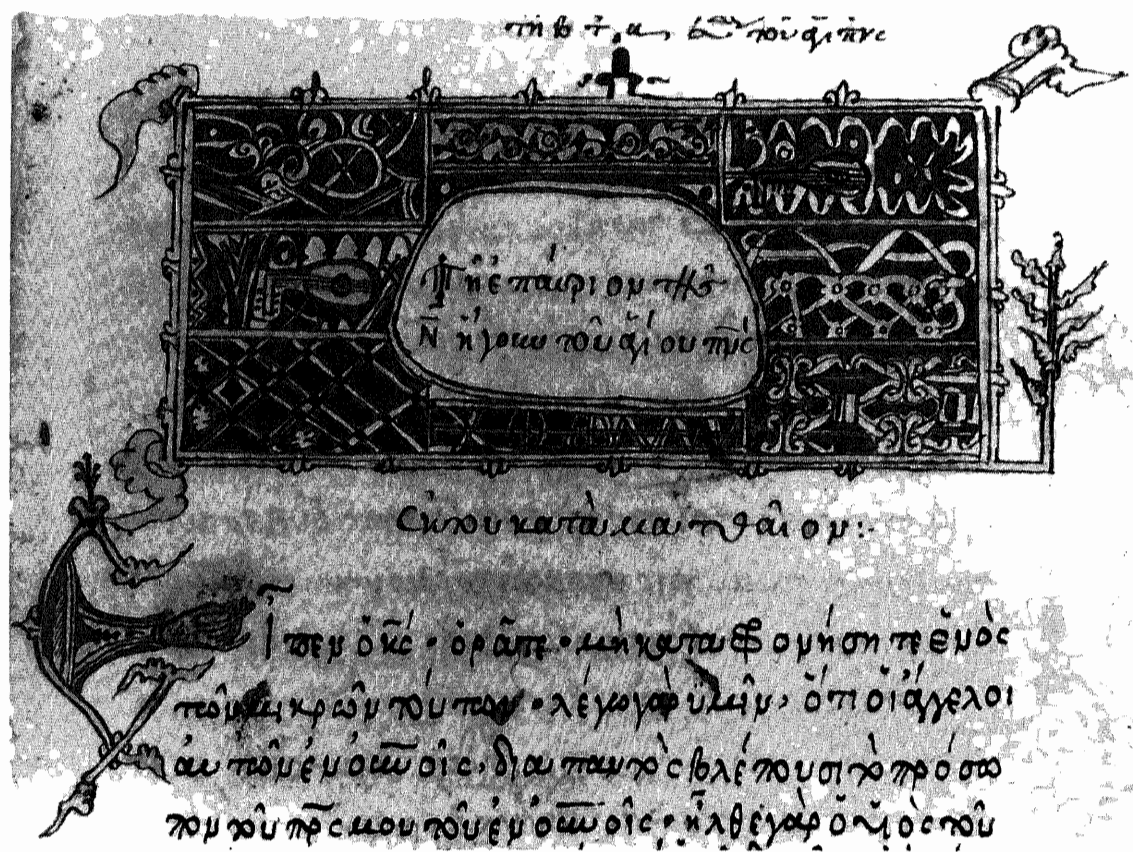 τῆ β τ̂ α τοῦ ἁγί πν̅ς
Τῆ ἐπαύριον τῆς
Ν ἤγουν τοῦ ἁγίου πν̅ς
ἐκ τοῦ κατὰ ματθαῖον :-
Εἶπεν ὁ κ̅ς · ὁρᾶτε · μὴ καταφρονήσητε ἑνὸς
τῶν μικρῶν τούτων · λέγω γὰρ ὑμῖν, ὅτι οἱ ἄγγελοι
αὐτῶν ἐν ο̅υ̅νοῖς, διαπαντὸς βλέπουσι τὸ πρόσω
πον τοῦ π̅ρ̅ς μου τοῦ ἐν ο̅υ̅νοῖς · ἦλθε γὰρ ὁ υἱὸς τοῦ